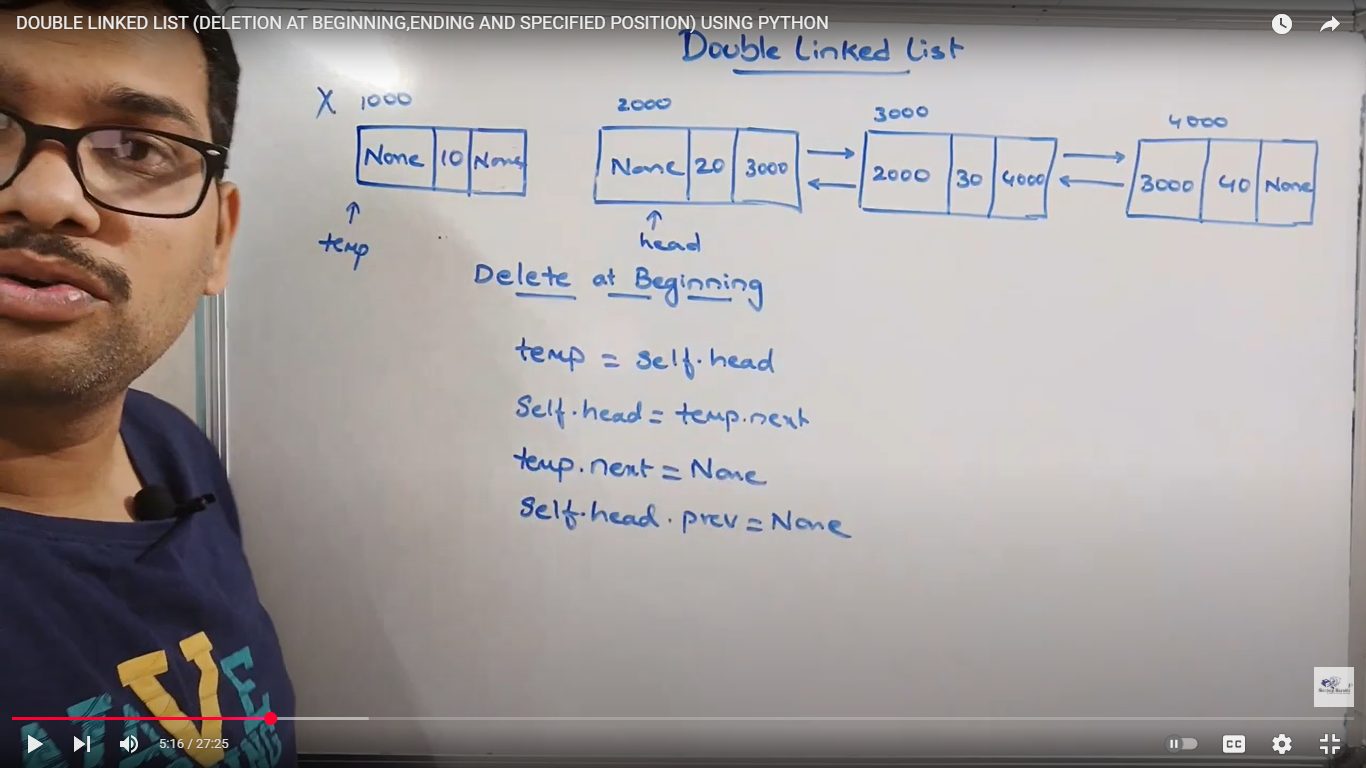 DOUBLE LINKED LIST (DELETION AT BEGINNING,ENDING AND SPECIFIED POSITION) USING PYTHON
Double Linked List
X 1000 2000 3000 4000
None 10 None None 20 3000 2000 30 4000 3000 40 None
temp head
Delete at Beginning
temp = self.head
Self.head = temp.next
temp.next = None
Self.head.prev = None
5:16 / 27:25
CC